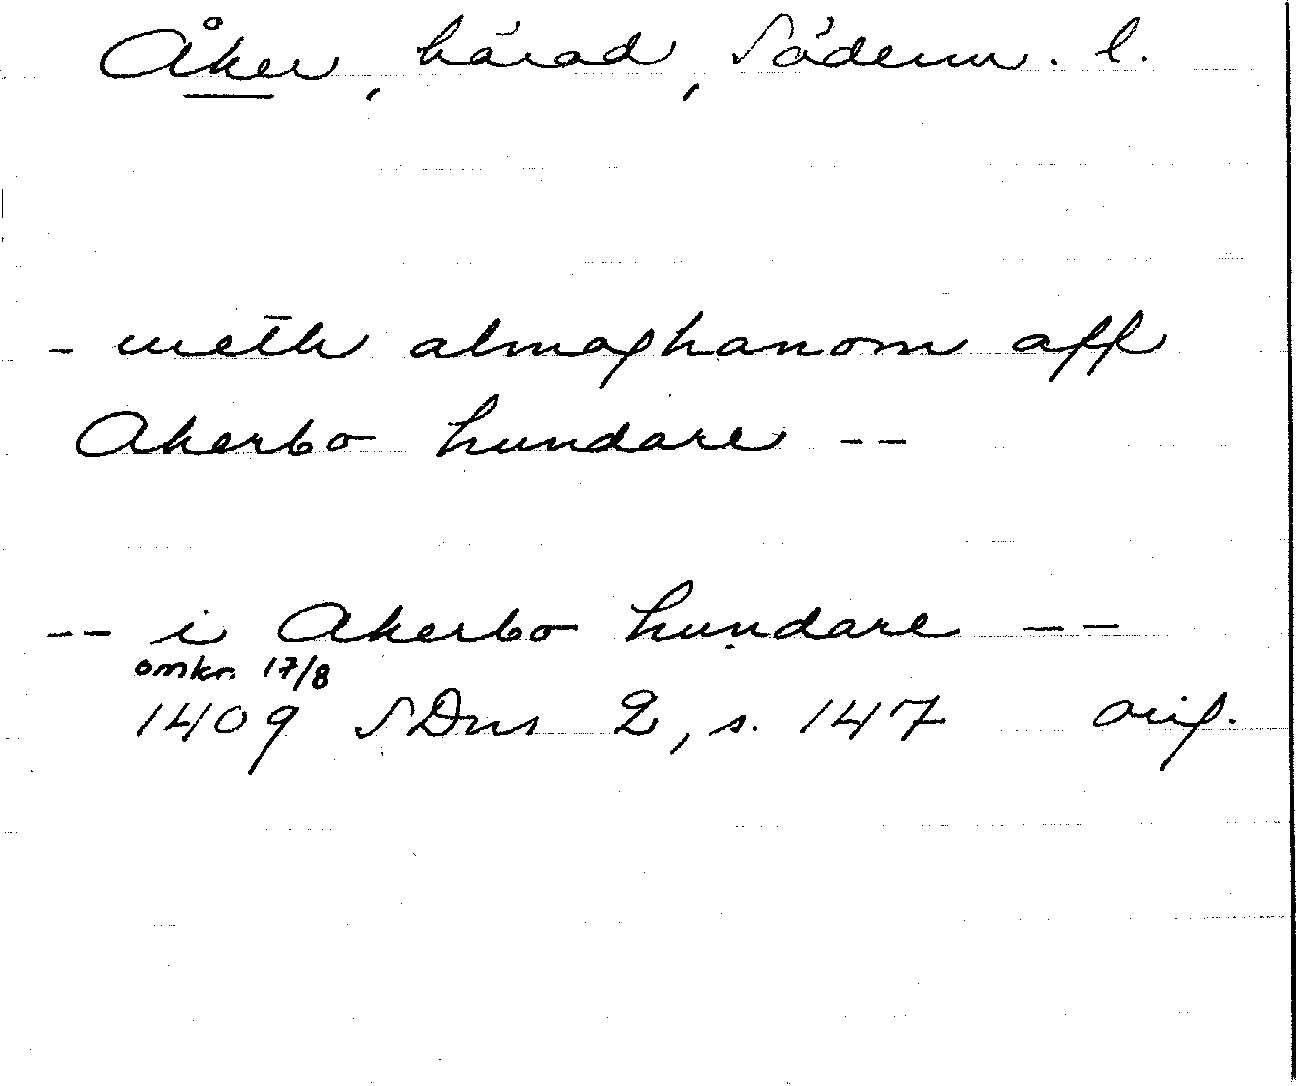 Åker, härad, Söderm. l.
- meth almoghanom aff
Akerbo hundare --
-- i Akerbo hundare --
omkr. 17/8
1409 SDns 2, s. 147 orig.